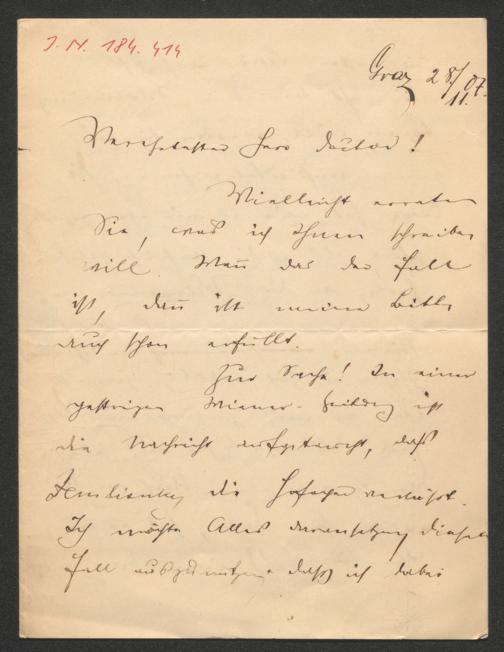 I. N. 184.414
Graz 28/11. 07.
Verehrtester Herr Doctor!
Vielleicht erraten
Sie, was ich Ihnen schreiben
will. Wenn das der Fall
ist, dann ist meine Bitte
auch schon erfüllt.
Zur Sache! In einer
gestrigen Wiener-Zeitung ist
die Nachricht aufgetaucht, daß
Zemlinsky die Hofoper verläßt.
Ich möchte Alles daransetzen diesen
Fall auszunutzen, daß ich dabei